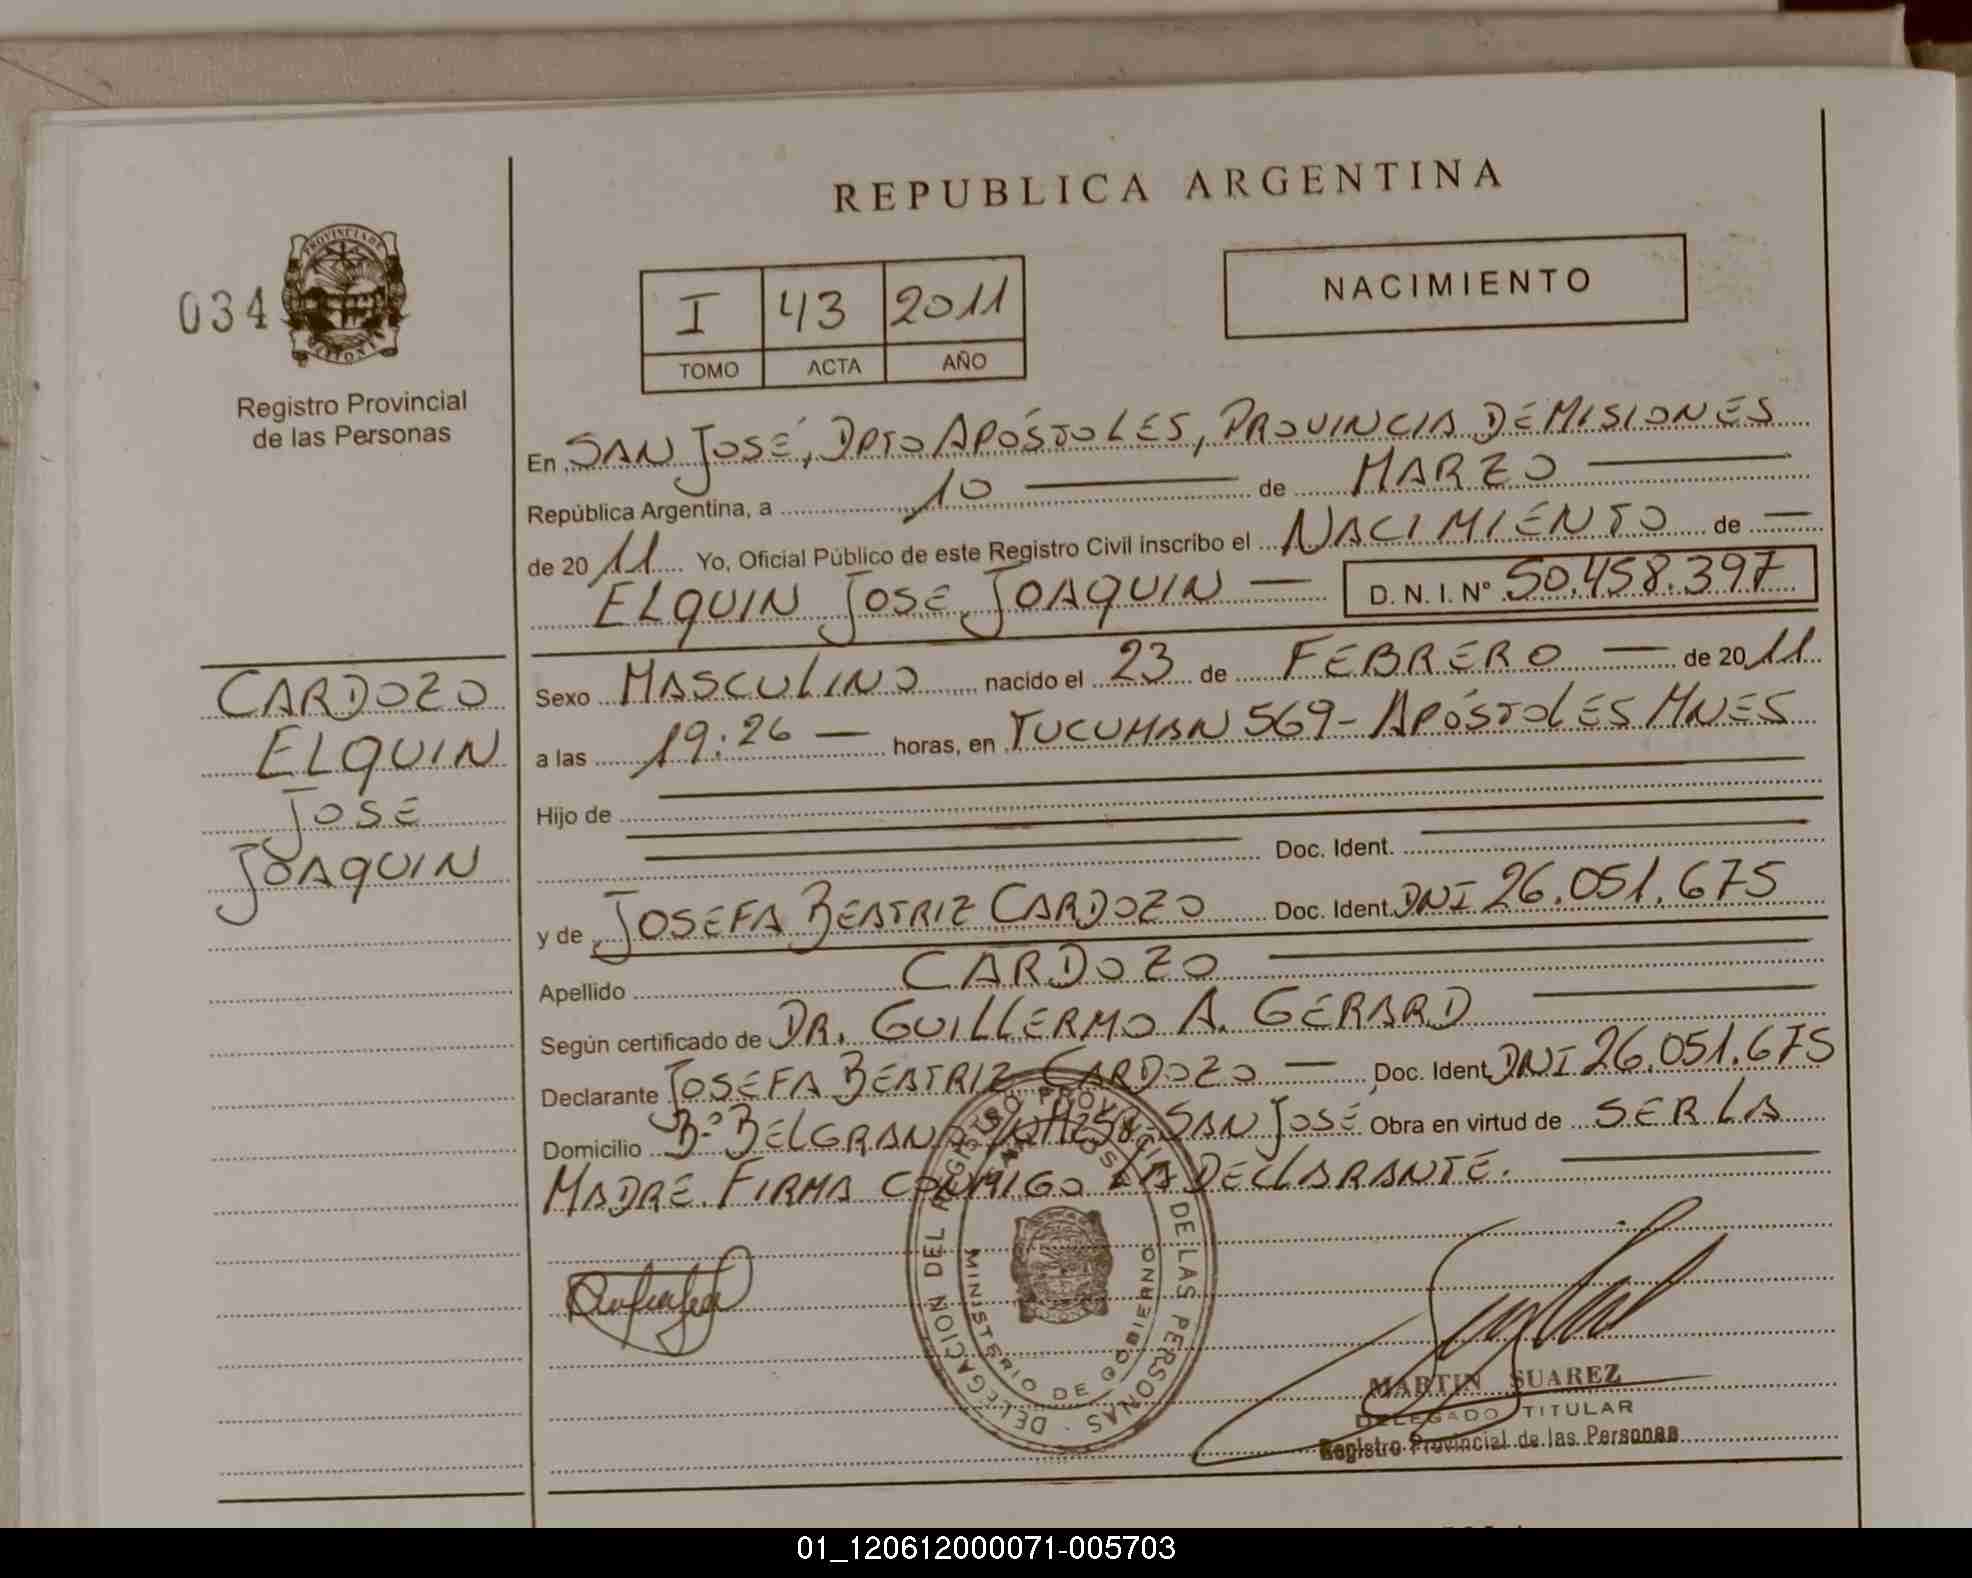 REPUBLICA ARGENTINA
034
PROVINCIA DE
MISIONES
Registro Provincial
de las Personas
I 43 2011
TOMO ACTA AÑO
NACIMIENTO
En SAN JOSÉ, DPTO APÓSTOLES, PROVINCIA DE MISIONES
República Argentina, a 10 — de MARZO —
de 2011 Yo, Oficial Público de este Registro Civil inscribo el NACIMIENTO de —
ELQUIN JOSE JOAQUIN — D. N. I. Nº 50.458.397
CARDOZO
ELQUIN
JOSE
JOAQUIN
Sexo MASCULINO nacido el 23 de FEBRERO — de 2011
a las 19:26 — horas, en TUCUMAN 569 - APÓSTOLES MNES
Hijo de
Doc. Ident.
y de JOSEFA BEATRIZ CARDOZO Doc. Ident. DNI 26.051.675
Apellido CARDOZO
Según certificado de DR. GUILLERMO A. GERARD
Declarante JOSEFA BEATRIZ CARDOZO — Doc. Ident. DNI 26.051.675
Domicilio Bº BELGRANO SAN JOSÉ Obra en virtud de SER LA
MADRE. FIRMA CONMIGO LA DECLARANTE.
DELEGACION DEL REGISTRO PROVINCIAL DE LAS PERSONAS
MINISTERIO DE GOBIERNO
MARTIN SUAREZ
DELEGADO TITULAR
Registro Provincial de las Personas
01_120612000071-005703